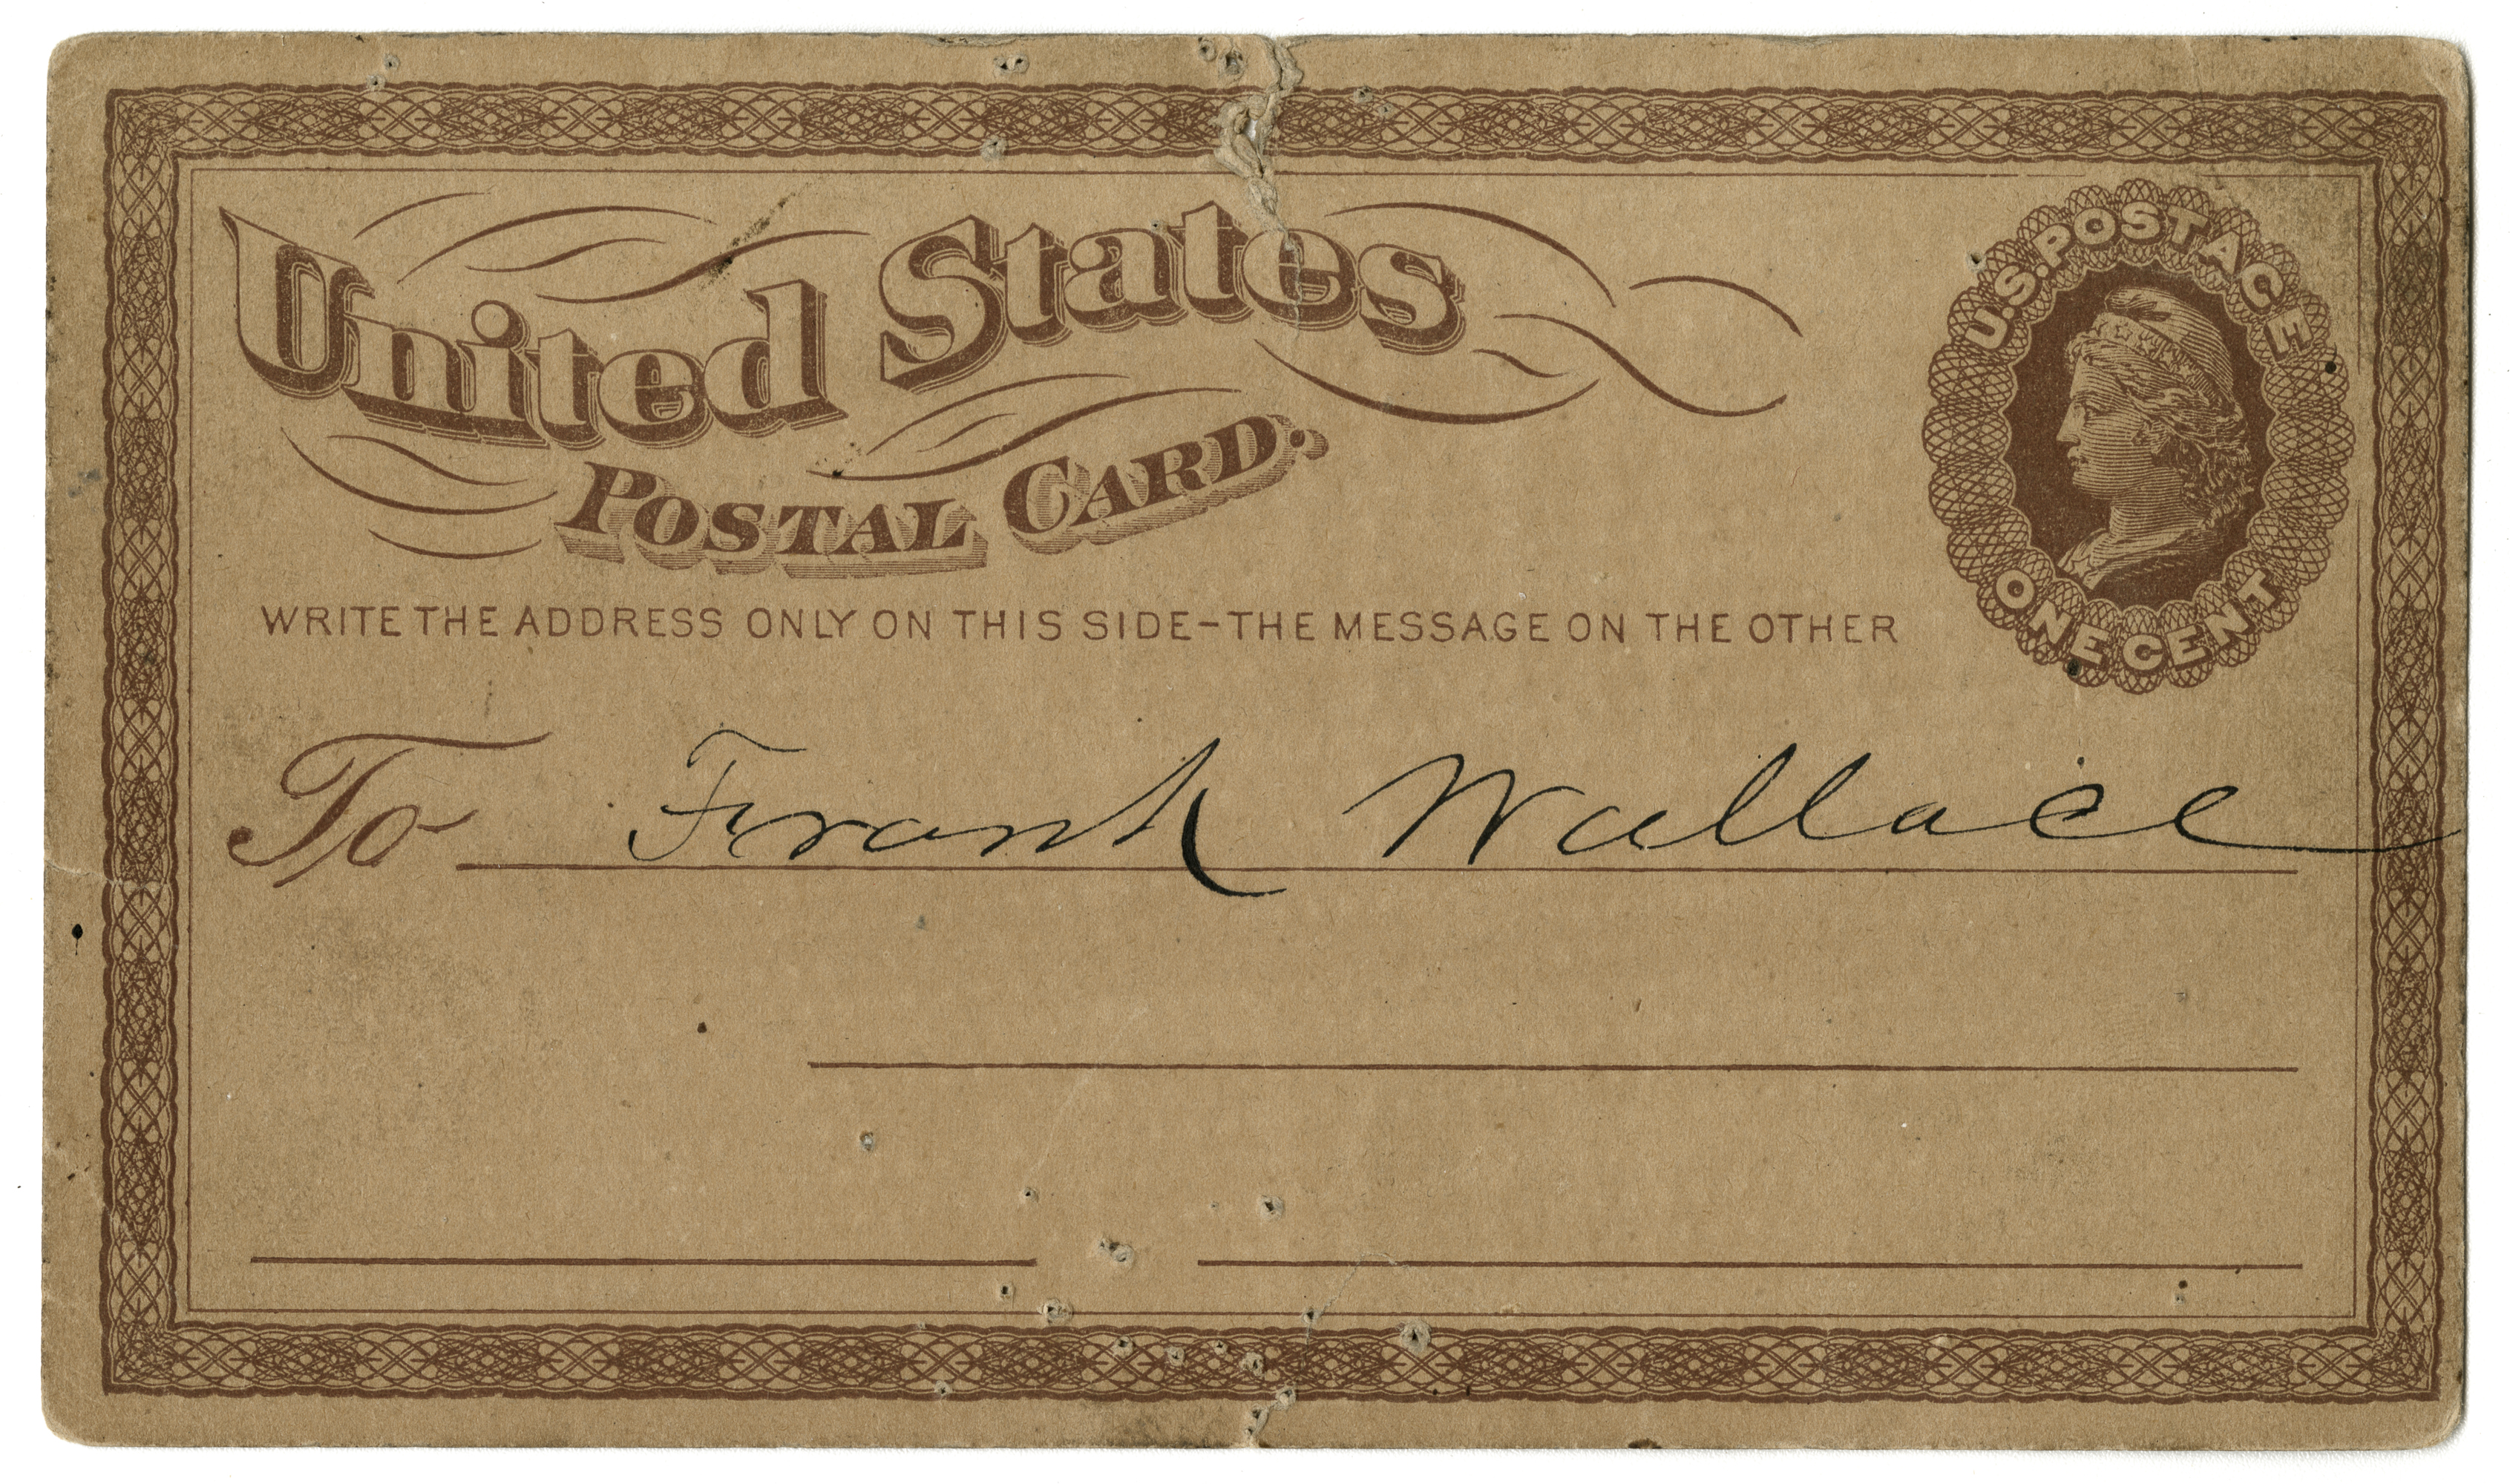 United States
POSTAL CARD.
U.S. POSTAGE
ONE CENT
WRITE THE ADDRESS ONLY ON THIS SIDE-THE MESSAGE ON THE OTHER
To Frank Wallace